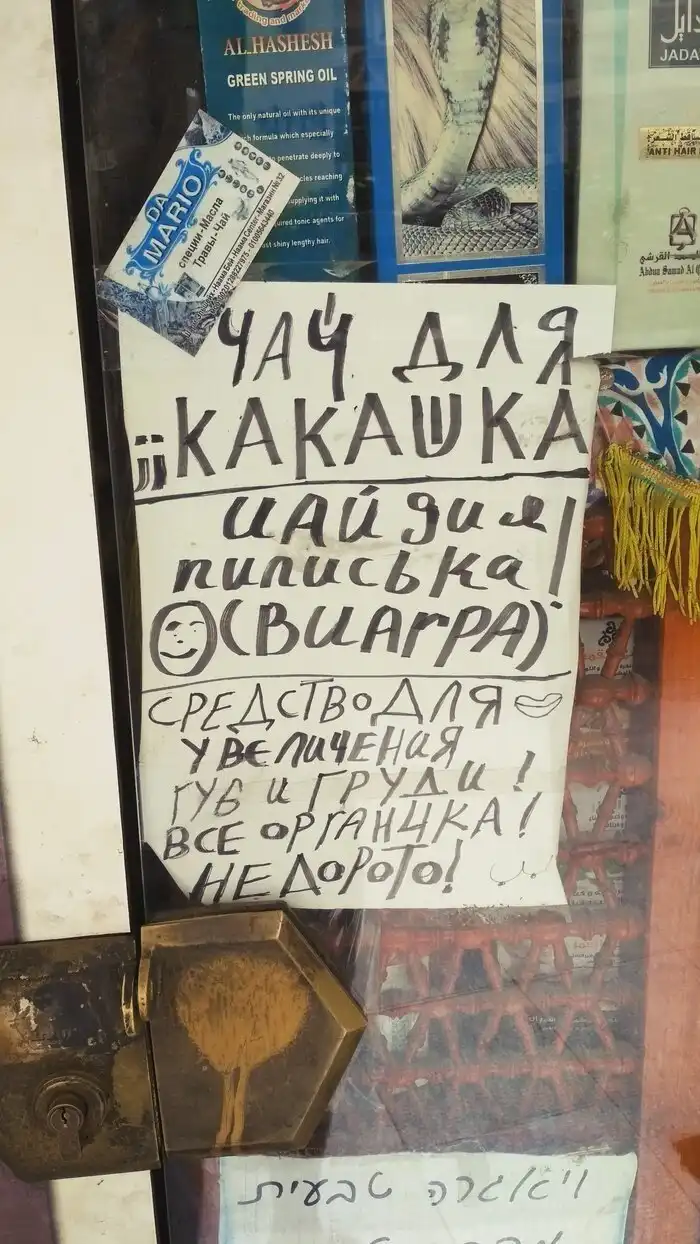 trading and mark
AL HASHESH
GREEN SPRING OIL
The only natural oil with its unique
formula which especially
to penetrate deeply to
reaching
supplying it with
tonic agents for
shiny lengthy hair.
JADA
ANTI HAIR
القرشي
Abdun Samad Al Q
DA MARIO
специи-Масла
Травы-Чай
ЧАЙ ДЛЯ
¡¡КАКАШКА
ЧАЙ ДИЯ
пиписька!
(ВИАГРА)
СРЕДСТВО ДЛЯ
УВЕЛИЧЕНИЯ
ГУБ И ГРУДИ!
ВСЕ ОРГАНЦКА!
НЕ ДОРОТО!
ויאגרה טבעית